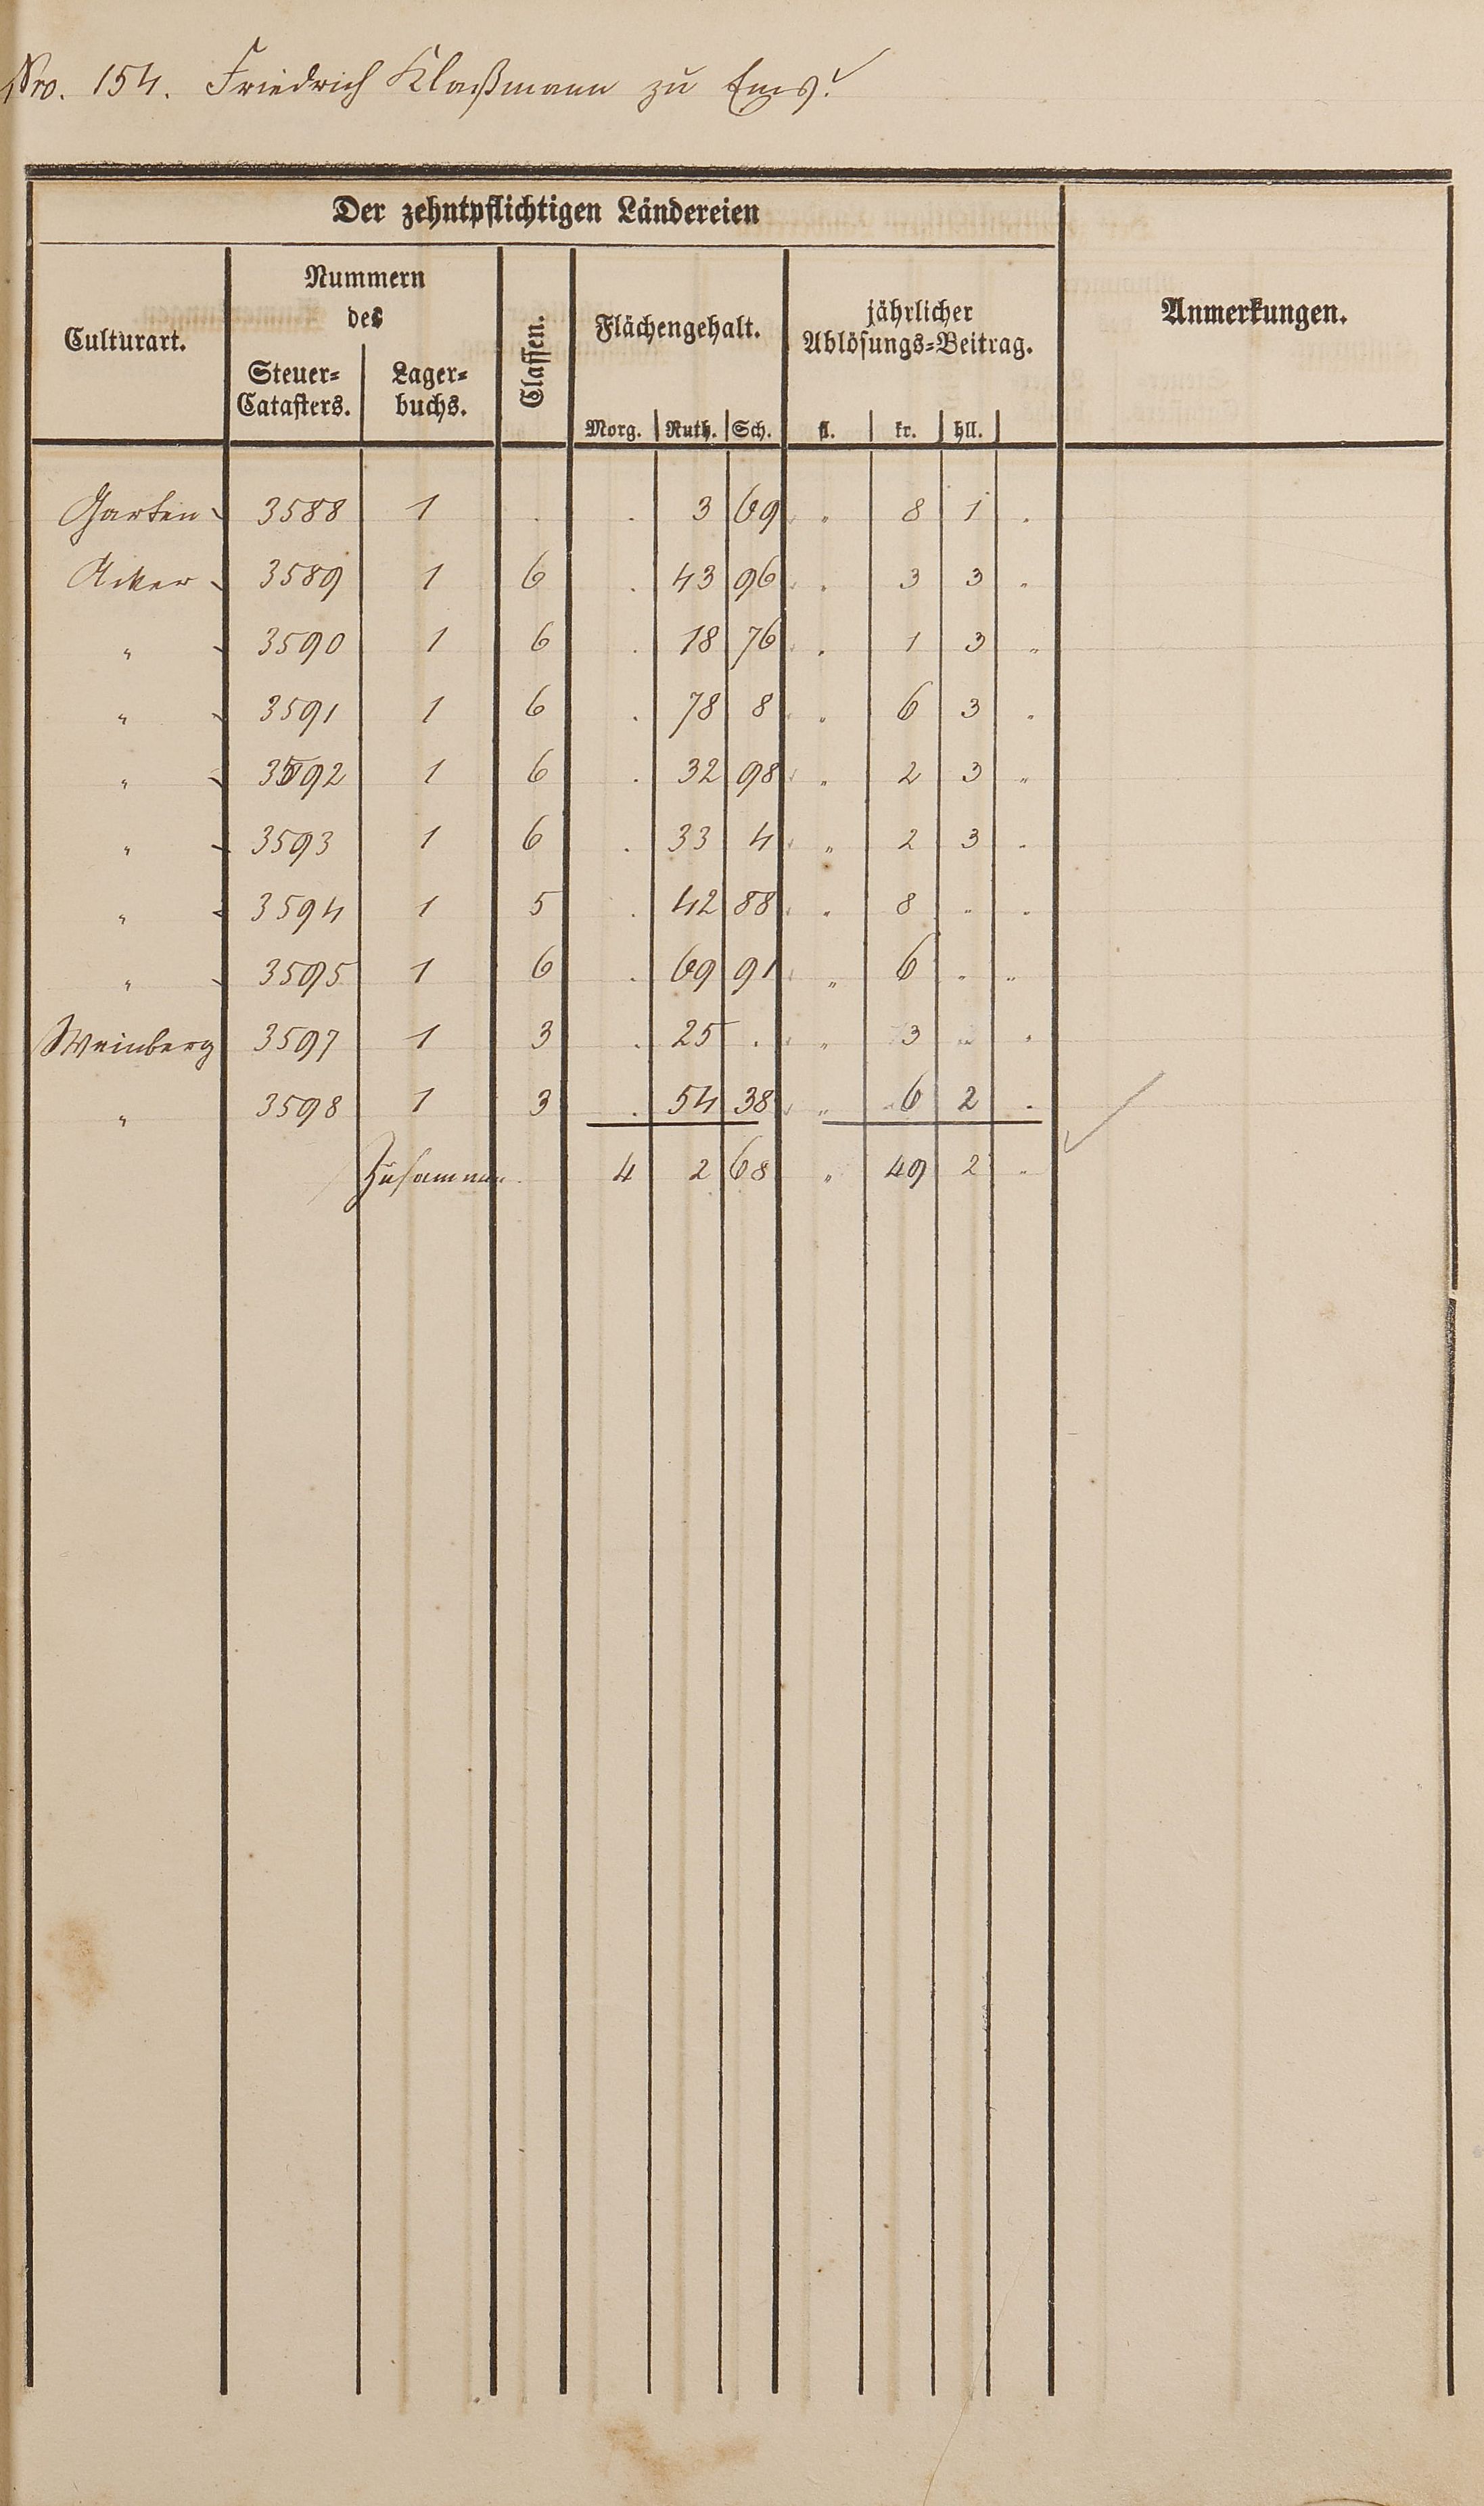 Nro. 154. Friedrich Klaßmann zu Ems.
Der zehntpflichtigen Ländereien
Culturart.
Nummern
des
Steuer-
Catasters.
Lager-
buchs.
Classen.
Flächengehalt.
Morg. Ruth. Sch.
jährlicher
Ablösungs-Beitrag.
fl. kr. hll.
Anmerkungen.
Garten 3588 1 . . 3 69 " 8 1 .
Acker 3589 1 6 . 43 96 " 3 3 "
" 3590 1 6 . 18 76 " 1 3 "
" 3591 1 6 . 78 8 " 6 3 "
" 3592 1 6 . 32 98 " 2 3 "
" 3593 1 6 . 33 4 " 2 3 "
" 3594 1 5 . 42 88 " 8 " "
" 3595 1 6 . 69 91 " 6 " "
Weinberg 3597 1 3 . 25 . " 3 " "
" 3598 1 3 . 54 38 " 6 2 "
Zusammen 4 2 68 " 49 2 "